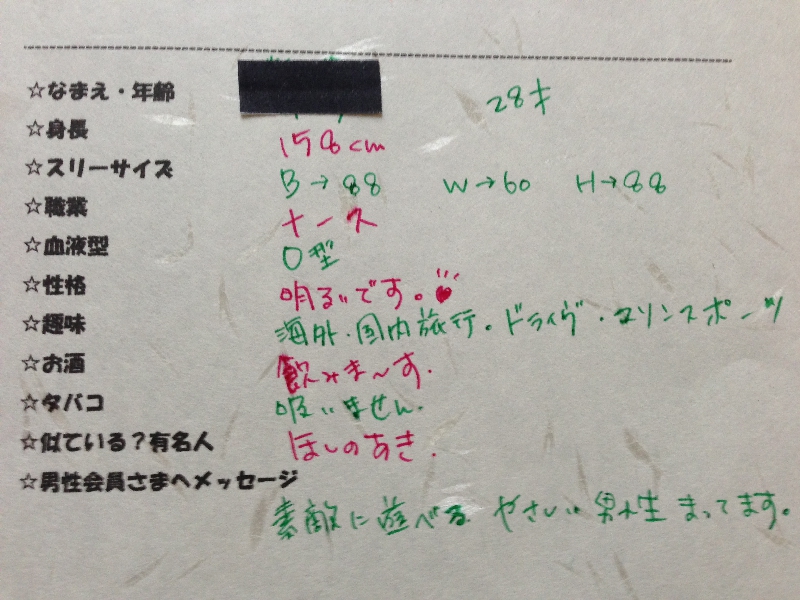 ☆なまえ・年齢 28才
☆身長 158cm
☆スリーサイズ B→88 W→60 H→88
☆職業 ナース
☆血液型 O型
☆性格 明るいです。♥
☆趣味 海外・国内旅行。ドライヴ・マリンスポーツ
☆お酒 飲みま〜す.
☆タバコ 吸いません.
☆似ている?有名人 ほしのあき.
☆男性会員さまへメッセージ
素敵に遊べる やさしい 男性 まってます。